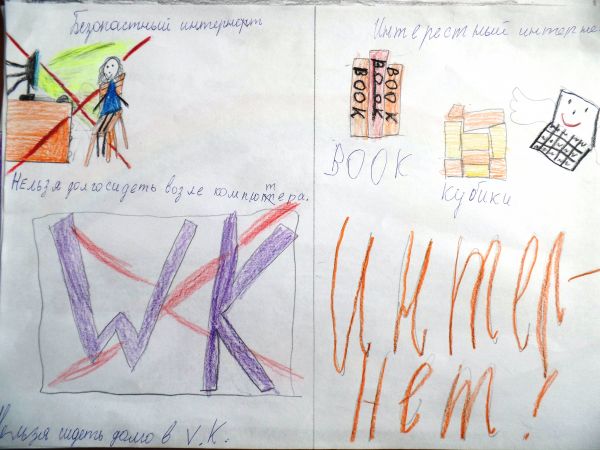 Безопастный
Нельзя долго сидеть возле компютера.
WK
Нельзя сидеть в V.K.
Интерестный интерне
BOOK
BOOK
BOOK
BOOK
Кубики
Интер-
нет!